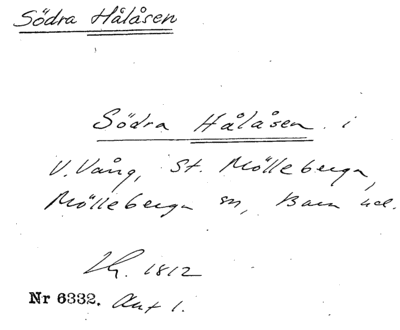 Södra Hålåsen
Södra Hålåsen i
V. Vång, St. Mölleberga,
Mölleberga sn, Bara hd.
1812
Nr 6332. Akt 1.